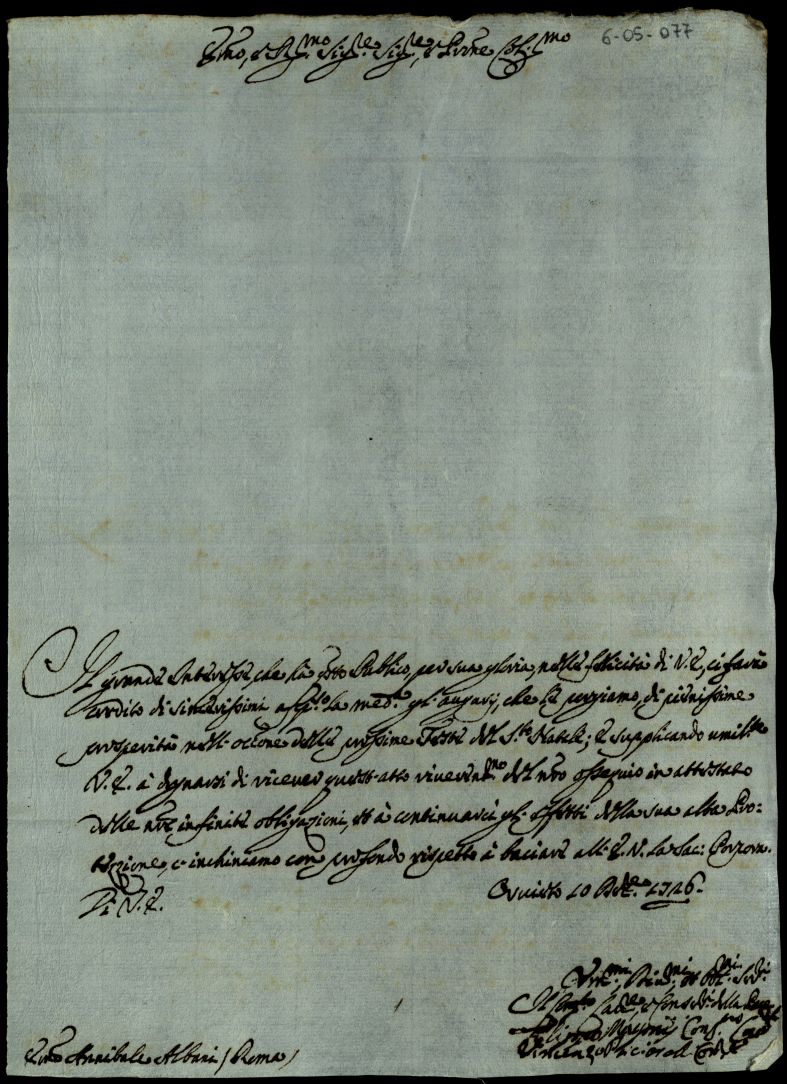 6-05-077
Emo, e Rmo Sigre Sigre, e Prone Col.mo
Il grande Interesse, che hà qsto Publico, per sua gloria, nelle felicità di V.E., ci farà
credito di sincerissimi app.o la med.a gl'augurj, che le porgiamo, di pienissime
prosperità nell'occone delle prossime Feste del S.to Natale; E supplicando umilte
V.E. à degnarsi di ricever quest'atto riverentmo del nro ossequio in attestato
delle nre infinite obligazioni, et à continuarci gl'effetti della sua alta Pro-
tezione, c'inchiniamo con profondo rispetto à baciare all'E.V. la Sac: Porpora.
Di V.E.
Orvieto 10 Xbre 1726.
Umi, Di mi et Obl.mi Ser.ri
Consri della
Emo Annibale Albani (Roma)